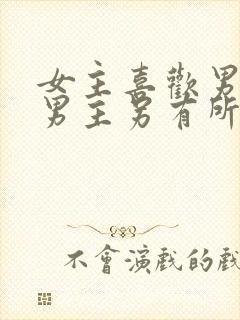 女主喜歡男
男主另有所
不會演戲的戲